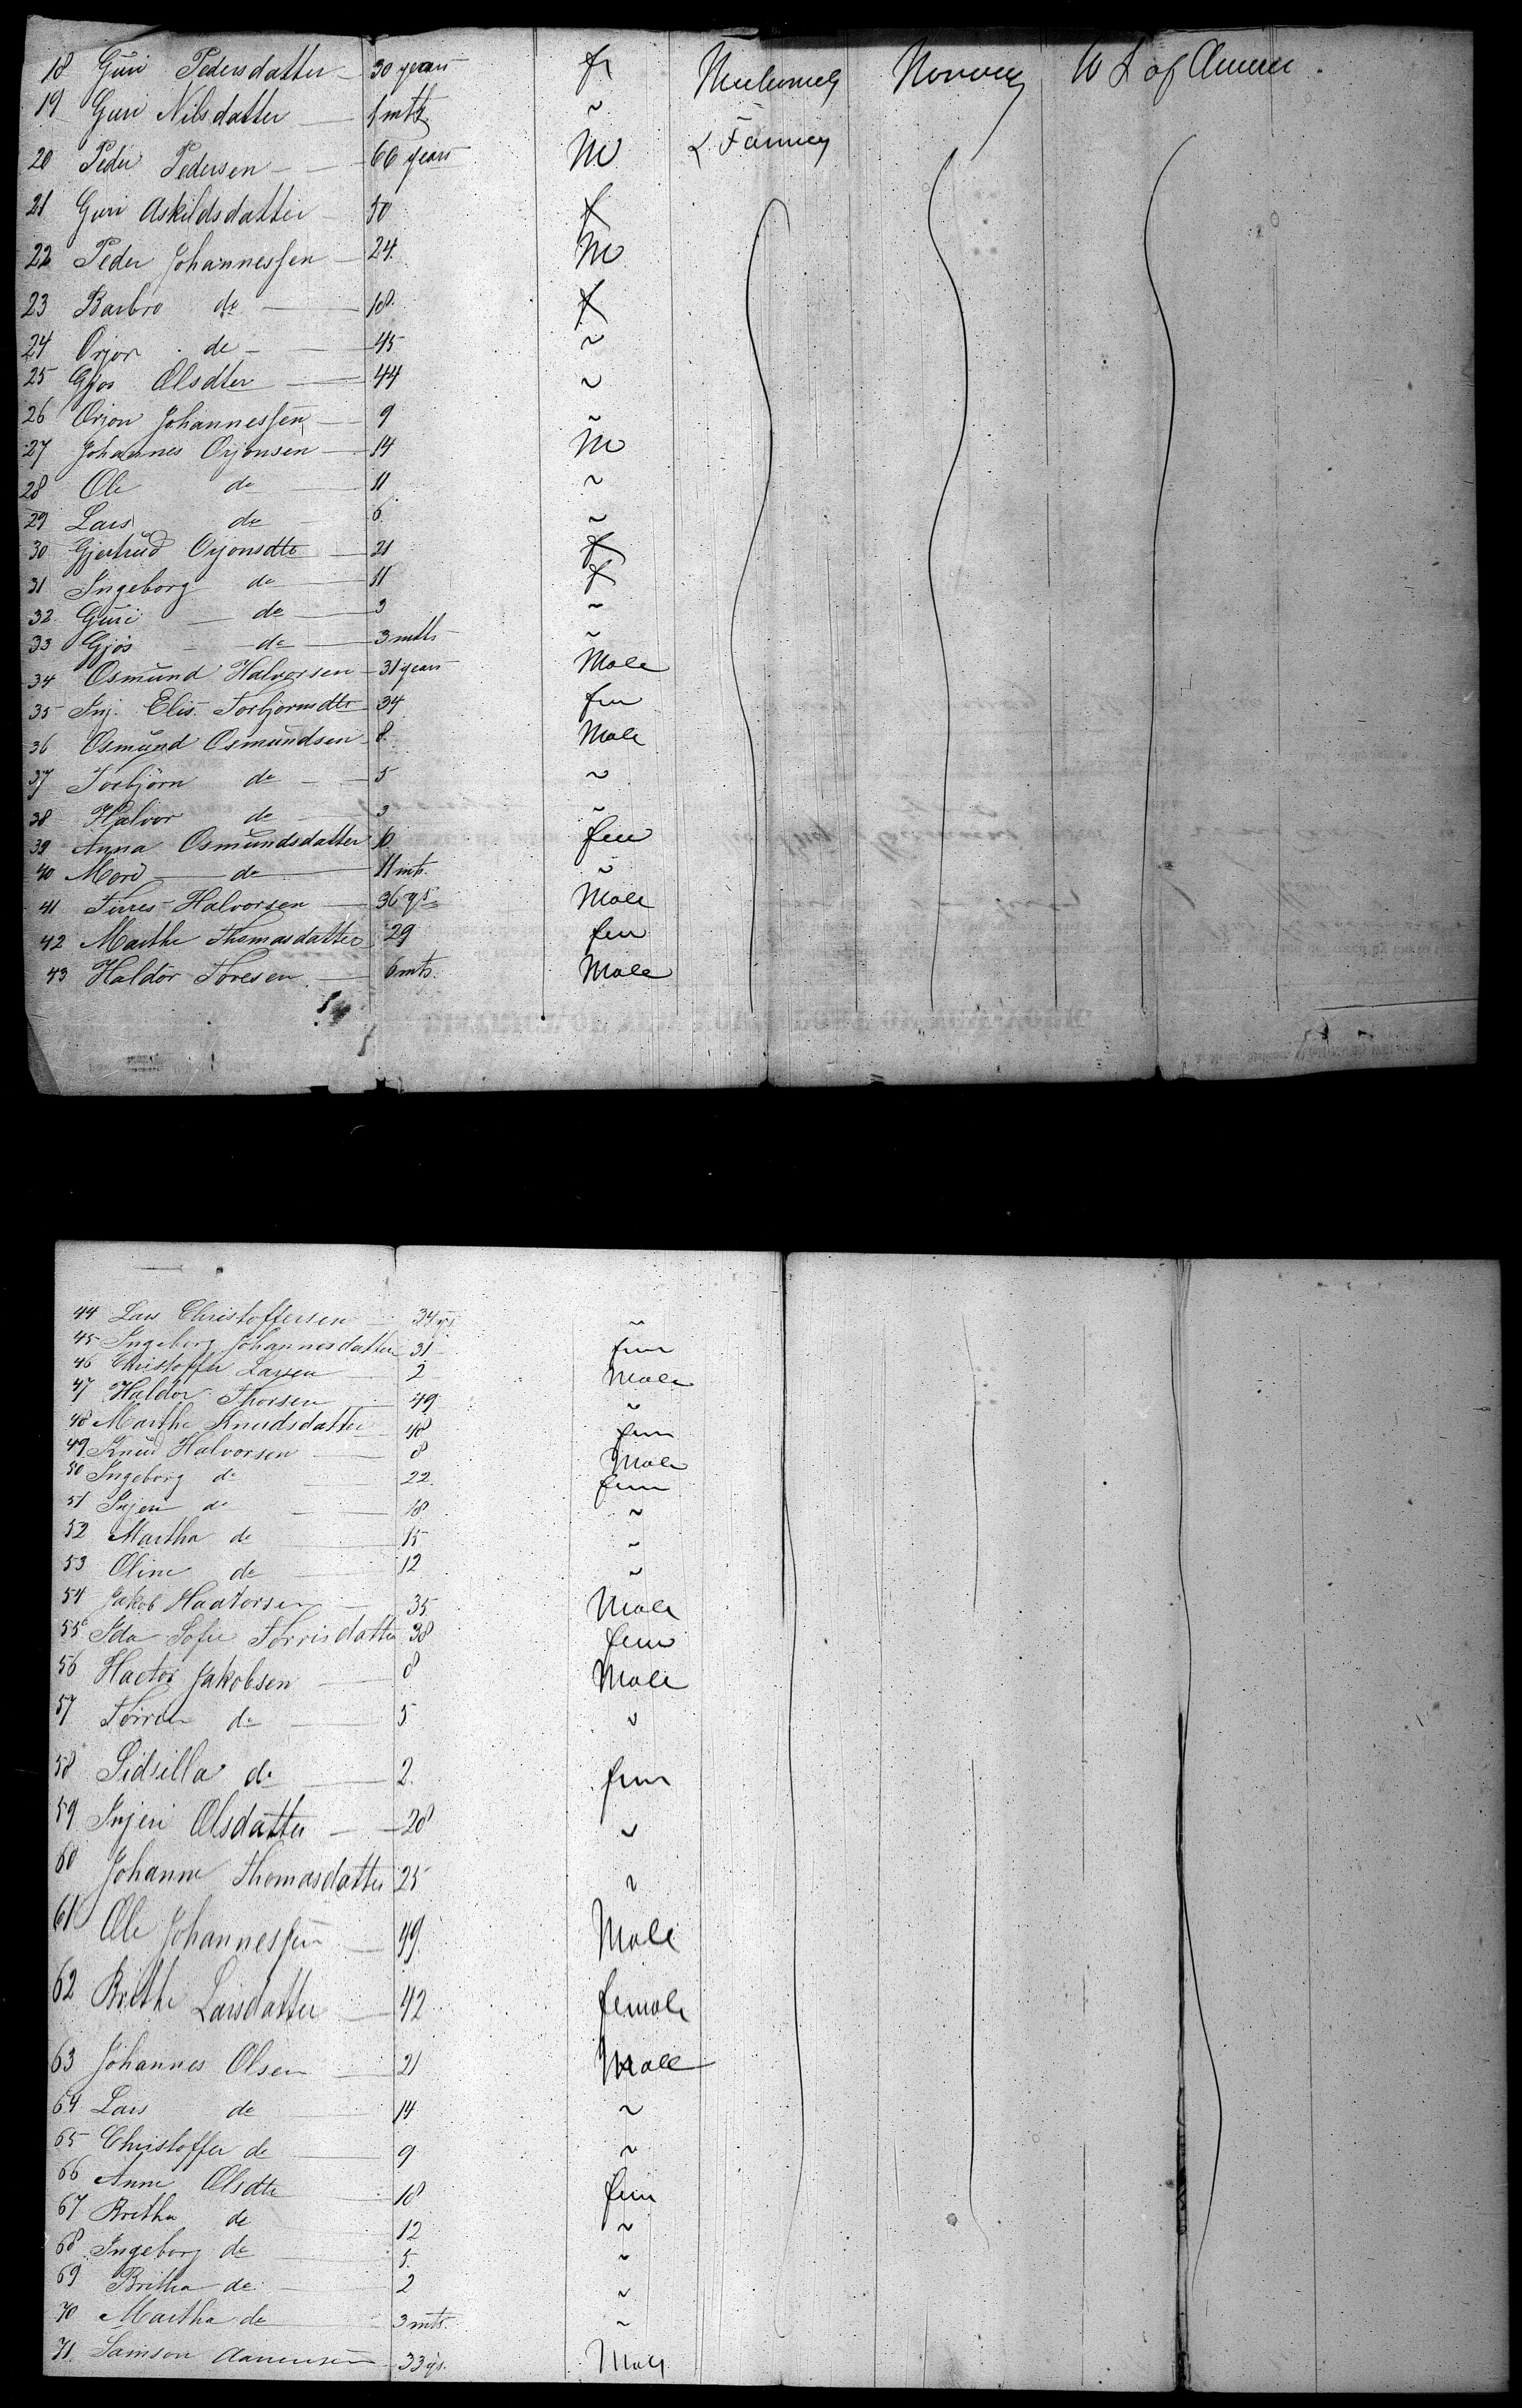 18 Guri Pedersdatter 30 years f Norway U S of
19 Guri Nilsdatter 1 mth ~
20 Peder Pedersen 66 years M & Farmer
21 Guri Askildsdatter 50 f
22 Peder Johannessen 24 M
23 Barbro do 18 f
24 Orjon do 45 ~
25 Gjos Olsdter 44 ~
26 Orjon Johannessen 9 ~
27 Johannes Orjonsen 14 M
28 Ole do 11 ~
29 Lars do 6 ~
30 Gjertrud Orjonsdtr 21 f
31 Ingeborg do 11 f
32 Guri do 3 ~
33 Gjos do 3 mths ~
34 Osmund Halvorsen 31 years Male
35 Inj. Elis. Torbjornsdtr 34 fem
36 Osmund Osmundsen 8 Male
37 Torbjörn do 5 ~
38 Halvor do 3 ~
39 Anna Osmundsdatter 10 fem
40 do 11 mts. ~
41 Halvorsen 36 ys Male
42 Marthe Thomasdatter 29 fem
43 Haldor Toresen 6 mts. Male
44 Lars Christoffersen 34 ys ~
45 Ingeborg Johannesdatter 31 fem
46 Christoffer Larsen 2 Male
47 Haldor Thorsen 49 ~
48 Marthe Knudsdatter 48 fem
49 Knud Halvorsen 8 Male
50 Ingeborg do 22 fem
51 Injeri do 18 ~
52 Martha do 15 ~
53 Oline do 12 ~
54 Jakob 35 Male
55 Ida Sofie Torrisdatter 38 fem
56 Hactor Jakobsen 8 Male
57 do 5 ~
58 Sidsilla do 2 fem
59 Injeri Olsdatter 28 ~
60 Johanne Thomasdatter 25 ~
61 Ole Johannessen 49 Male
62 Brithe Larsdatter 42 female
63 Johannes Olsen 21 Male
64 Lars do 14 ~
65 Christoffer do 9 ~
66 Anne Olsdtr 18 fem
67 Britha do 12 ~
68 Ingeborg do 5 ~
69 Britha do 2 ~
70 Martha do 3 mts. ~
71 Samson 33 ys. Male